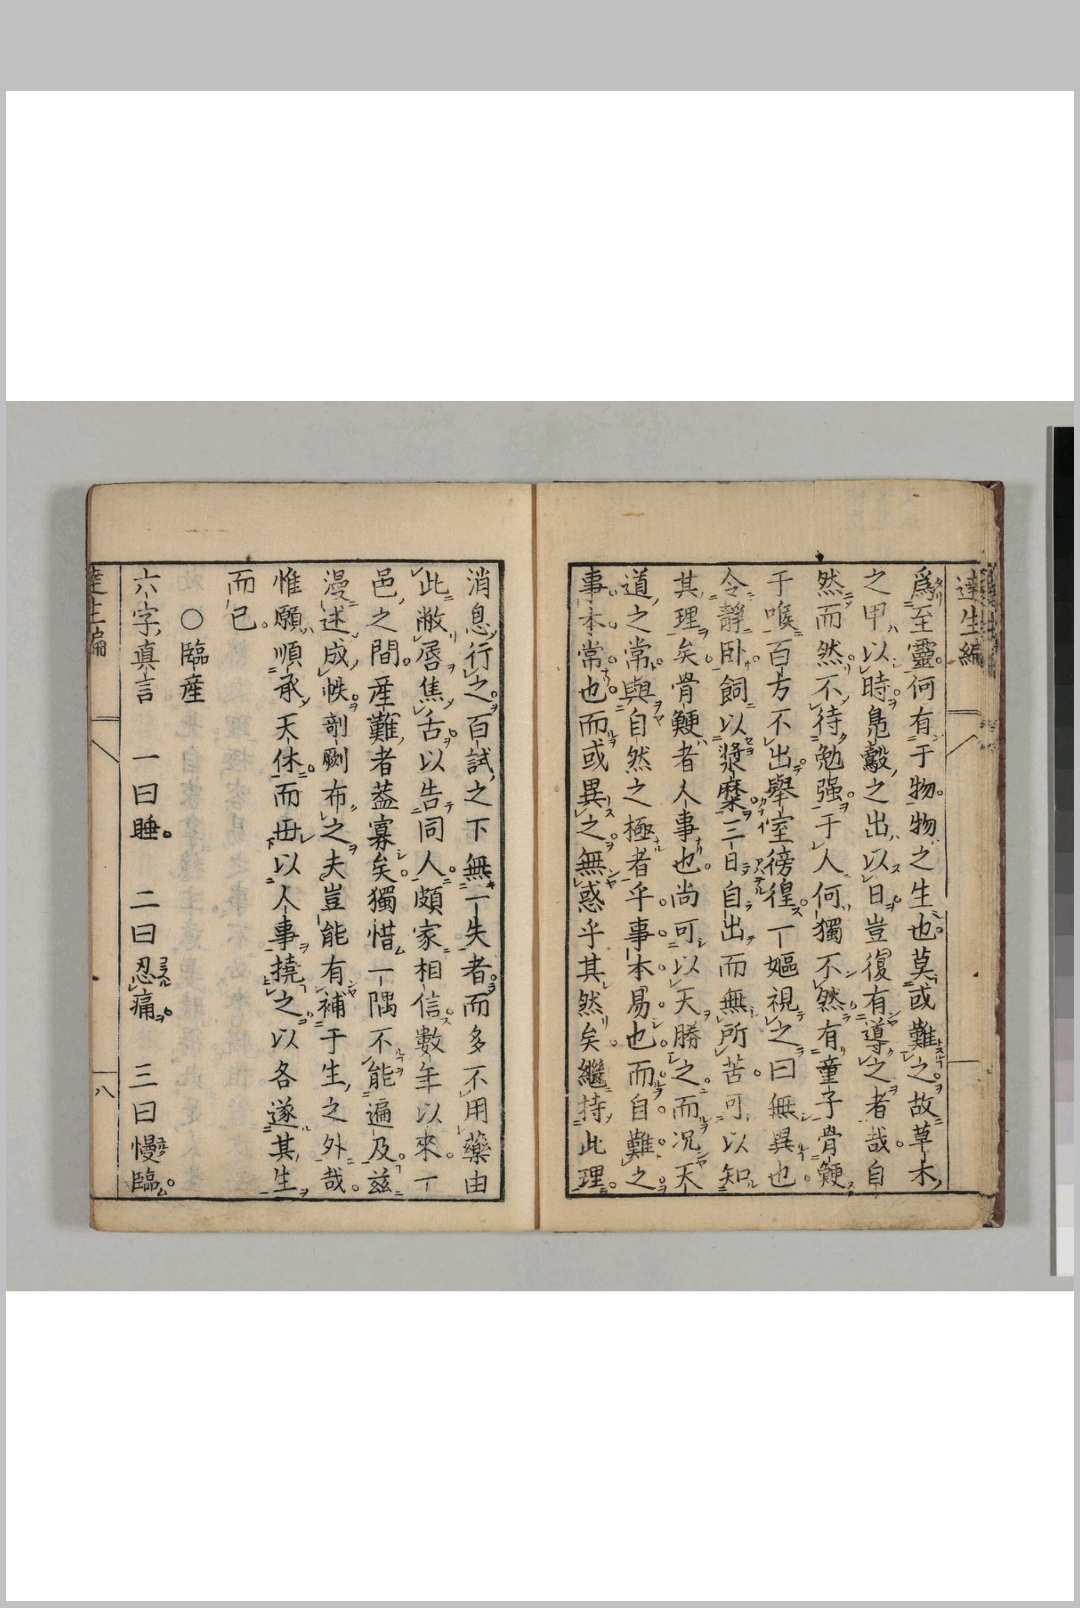 達生編
爲至靈何有于物物之生也莫或難之故草木
之甲以時鳧鷇之出以日豈復有導之者哉自
然而然不待勉强于人何獨不然有童子骨鯁
于喉百方不出擧室徬徨一嫗視之曰無異也
令靜卧飼以漿糜三日自出而無所苦可以知
其理矣骨鯁者人事也尚可以天勝之而况天
道之常與自然之極者乎事本易也而自難之
事本常也而或異之無惑乎其然矣繼持此理
消息行之百試之下無一失者而多不用藥由
此敝唇焦舌以告同人頗家相信數年以來一
邑之間産難者蓋寡矣獨惜一隅不能遍及兹
漫述成帙剞劂布之夫豈能有補于生之外哉
惟願順承天休而毋以人事撓之以各遂其生
而已
○臨産
六字眞言 一曰睡 二曰忍痛 三曰慢臨
達生編
八